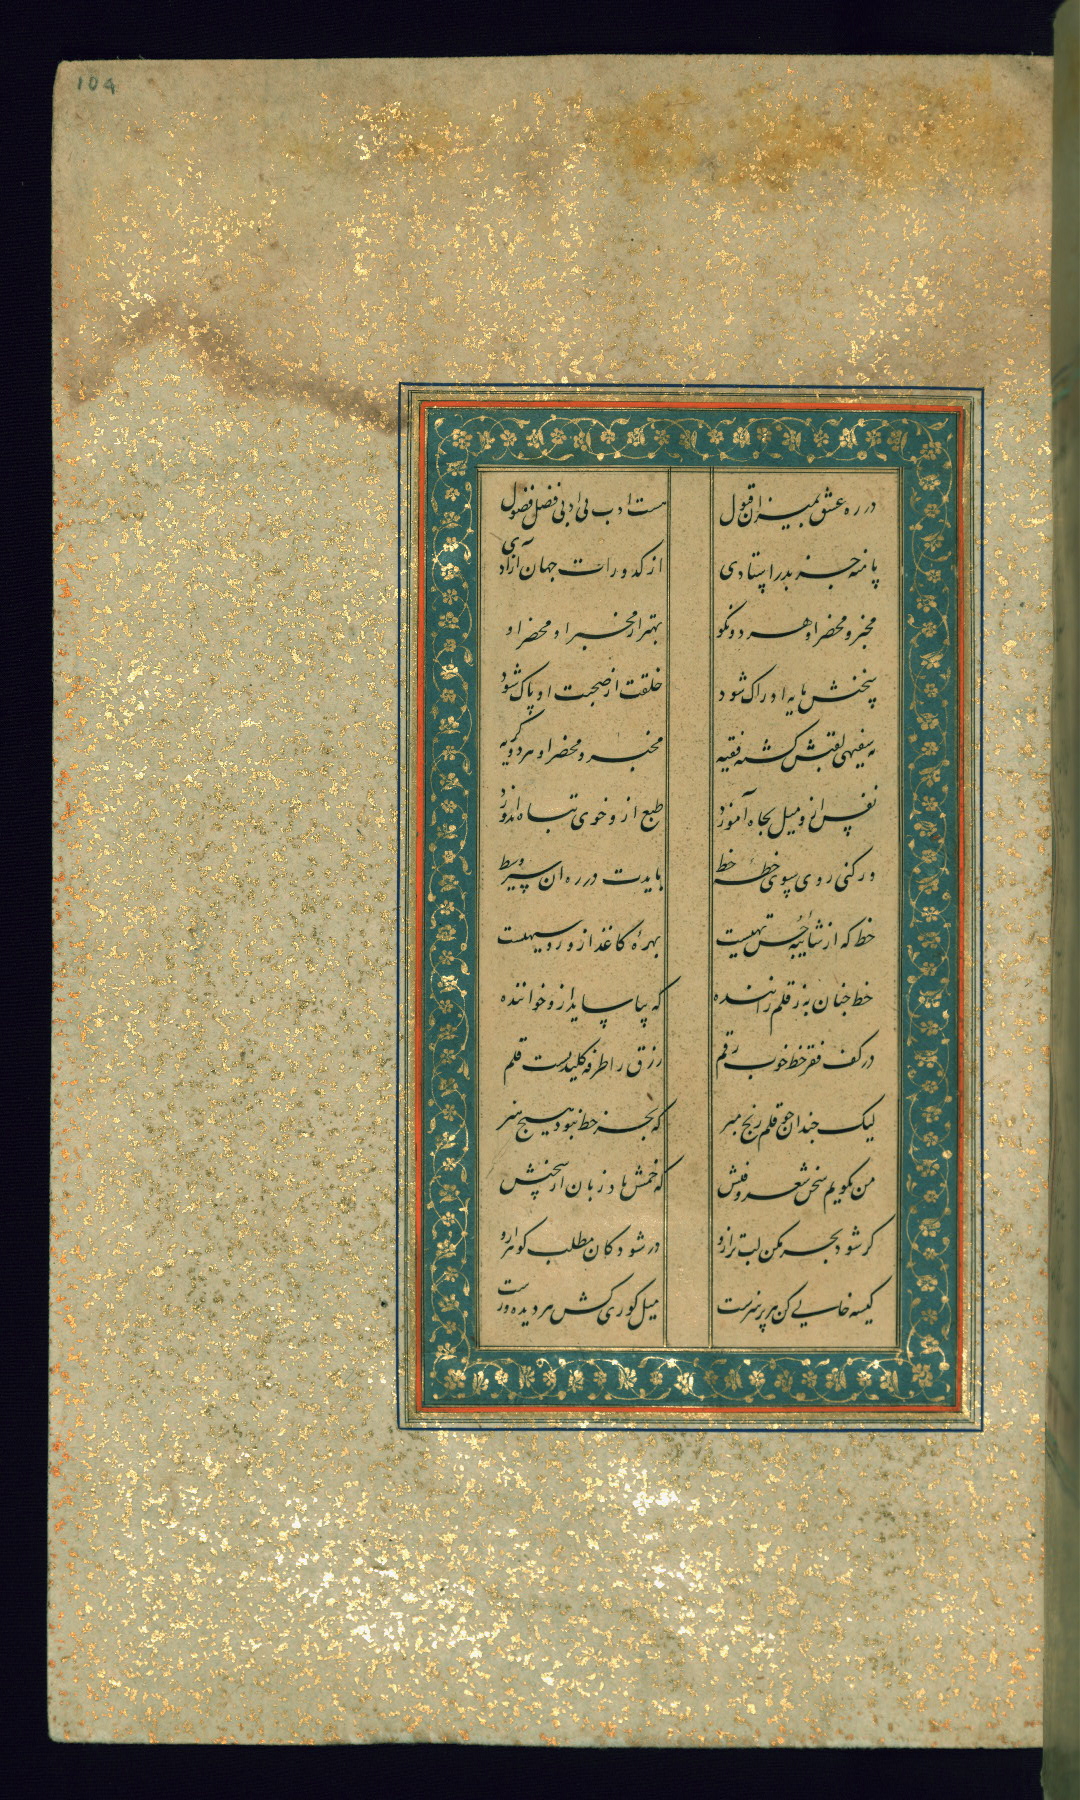 104
در ره عشق بمیزان قبول هست ادب بی ادبی فضل فضول
پا منه جز بدر استادی از کدورات جهان آزادی
مخبر و محضر او هر دو نکو بهتر از مخبر او محضر او
سخنش مایه ادراک شود خلقت از صحبت او پاک شود
نه سفیهی لقبش گشته فقیه مخبر و محضر او هر دو کریه
نفس ازو میل بجاه آموزد طبع ازو خوی تباه اندوزد
ور کنی روی بسوی خطه خط بایدت در ره آن سیر وسط
خط که از شائبه حسن تهیست بهره کاغذ ازو روسیهیست
خط چنان به ز قلم راننده که بیاساید ازو خواننده
در کف فقر خط خوب رقم رزق را طرفه کلیدست قلم
لیک چندان چو قلم رنج مبر که بجز خط نبود هیچ هنر
من نگویم سخن شعر و فنش که خمش باد زبان از سخنش
گر شود بحر مکن لب تر ازو ور شود کان مطلب گوهر ازو
کیسه خالی کن هر پر هنرست میل کوری کش هر دیده ورست